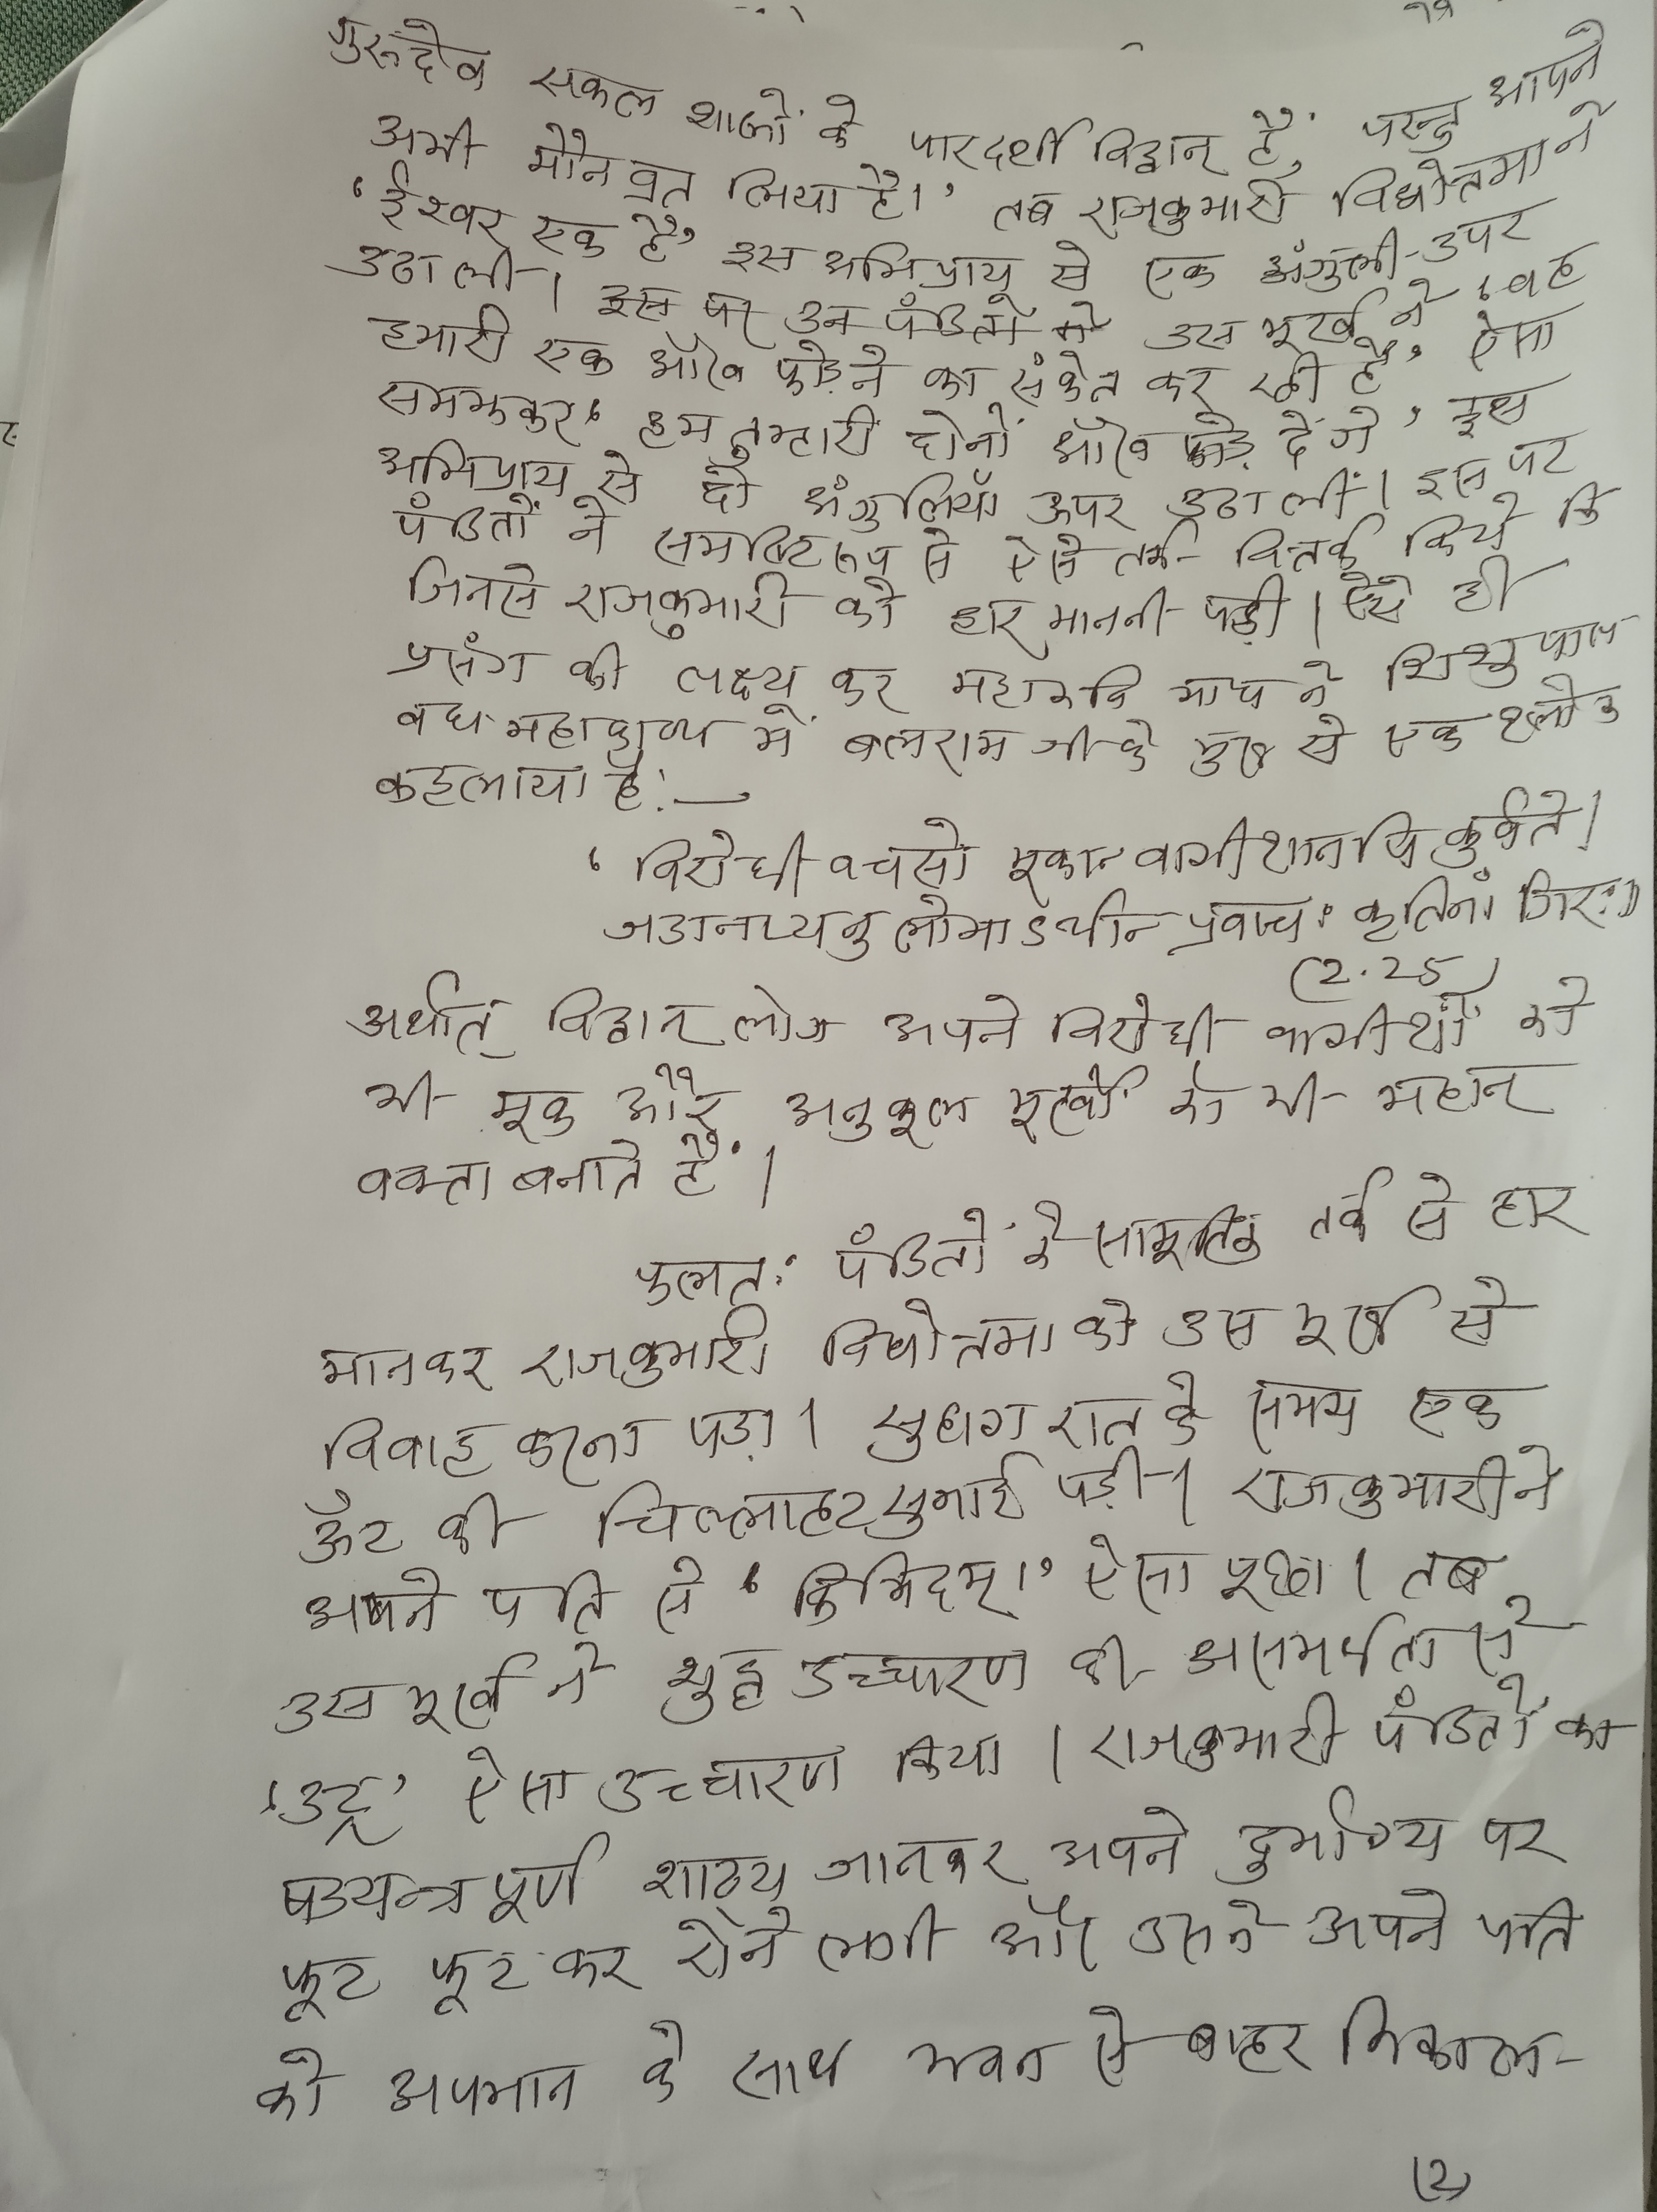 गुरुदेव सकल शास्त्रों के पारदर्शी विद्वान् हैं, परन्तु आपने
अभी मौन व्रत लिया है।' तब राजकुमारी विद्योत्तमा ने
'ईश्वर एक है' इस अभिप्राय से एक अंगुली उपर
उठा ली। इस पर उन पंडितों के उस मूर्ख ने 'वह
हमारी एक आँख फोड़ने का संकेत कर रही है' ऐसा
समझकर 'हम तुम्हारी दोनों आँखे फोड़ देंगे' इस
अभिप्राय से दो अंगुलियाँ ऊपर उठा लीं। इस पर
पंडितों ने समष्टि रूप से ऐसे तर्क-वितर्क किये कि
जिनसे राजकुमारी को हार माननी पड़ी। ऐसे ही
प्रसंग को लक्ष्य कर महाकवि माघ ने शिशुपाल
वध महाकाव्य में बलराम जी के मुख से एक श्लोक
कहलाया है:—
'विरोधी वचसो मूकान् वागीशानपि कुर्वते।
जडानप्यनुलोमाऽर्थान् प्रवाच: कृतिनां गिर:॥
(2.25)
अर्थात् विद्वान् लोग अपने विरोधी वागीशों को
भी मूक और अनुकूल मूर्खों को भी महान्
वक्ता बनाते हैं।
फलत: पंडितों के सामूहिक तर्क से हार
मानकर राजकुमारी विद्योत्तमा को उस मूर्ख से
विवाह करना पड़ा। सुहाग रात के समय एक
ऊँट की चिल्लाहट सुनाई पड़ी। राजकुमारी ने
अपने पति से 'किमिदम्।' ऐसा पूछा। तब
उस मूर्ख ने शुद्ध उच्चारण की असमर्थता से
'उट्र' ऐसा उच्चारण किया। राजकुमारी पंडितों का
षडयन्त्रपूर्ण शाठ्य जानकर अपने दुर्भाग्य पर
फूट फूट कर रोने लगी और उसने अपने पति
को अपमान के साथ भवन से बाहर निकाल-
(2)